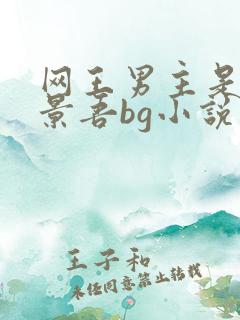 网王男主是
景吾bg小说
王子和
未经同意禁止转载